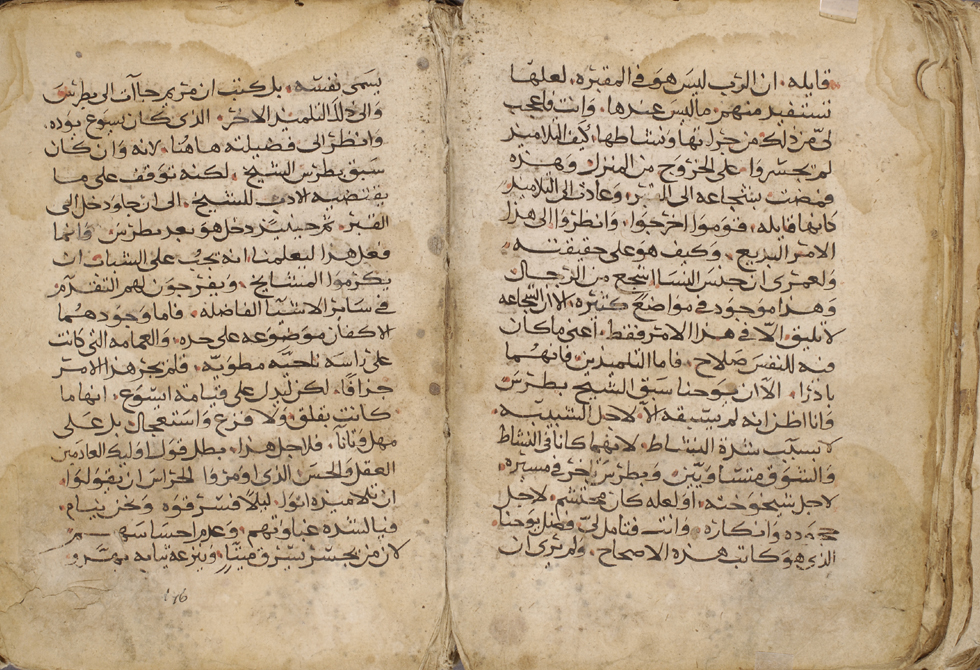 قايله، ان الرب ليس هو في المقبره، لعلها
تستفيد منهم ماليس عندها، وانت فاعجب
لي من ذلك من جراتها ونشاطها، كيف التلاميذ
لم يجسروا على الخروج من المنزل وهذه
فمضت بشجاعه الى القبر، وعادت الى التلاميذ
كانها قايله، قوموا اخرجوا، وانظروا الى هذا
الامر البديع، وكيف هو على حقيقته
ولعمري ان جنس النسا اشجع من الرجال
وهذا موجود في مواضع كثيره، الا ان الشجاعه
لا تليق الا في هذا الامر فقط، أعني ما كان
فيه للنفس صلاح، فاما التلميذين فانهما
بادرا، الا ان يوحنا سبق الشيخ بطرس
وانا اظن انه لم يسبقه الا لاجل الشبيبه
لا بسبب شدة النشاط، لانهما كانا في النشاط
والشوق متساويين، وبطرس تاخر في مسيره
لاجل شيخوخته، أو لعله كان محتشم، لاجل
جحوده وانكاره، وانت فتامل لي فضل يوحنا
الذي هو كاتب هذه الاصحاح، ولم يرى ان
يسمى نفسه، بل كتب ان مريم جاات الى بطرس
والى ذلك التلميذ الاخر، الذي كان يسوع يوده،
وانظر الى فضيلته هاهنا، لانه وان كان
سبق بطرس الشيخ، لكنه توقف على ما
يقتضيه الادب للشيخ، الى ان جا ودخل الى
القبر، ثم حينيذ دخل هو بعد بطرس، وانما
فعل هذا ليعلمنا، انه يجب على الشباب ان
يكرموا المشايخ، ويفرجون لهم التقدم
في ساير الاشيا الفاضله، فاما وجودهما
الاكفان موضوعه على حده، والعمامه التي كانت
على راسه ناحيه مطويه، فلم يجر هذا الامر
جزافا، لكن ليدل على قيامة ايسوع، انها ما
كانت بقلق ولا فزع واستعجال بل على
مهل وتانا، فلاجل هذا، بطل قول اوليك العادمين
العقل والحس الذي اومروا الحراس ان يقولوا،
ان تلاميذه اتوا، ليلا فسرقوه ونحن نيام،
فيا لشدة غباوتهم، وعدم احساسهم
لان من يجسر يسرق ميتا، وينزعه ثيابه بهدو
١٧٦